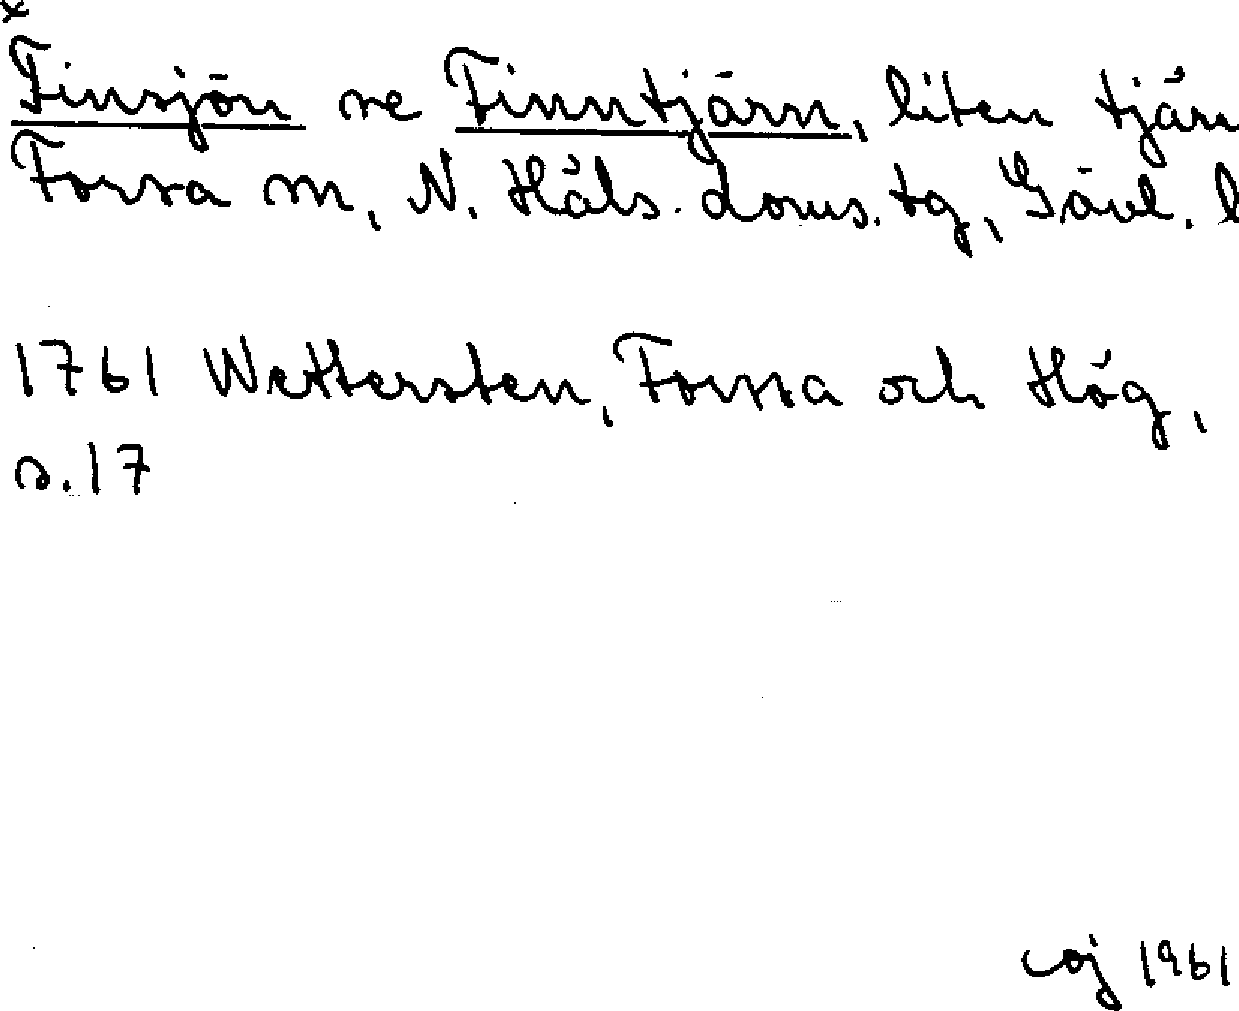 x
Finsjön se Finntjärn, liten tjärn
Forssa sn, N. Häls. doms. tg, Gävl. l
1761 Wettersten, Forssa och Hög,
s. 17
coj 1961